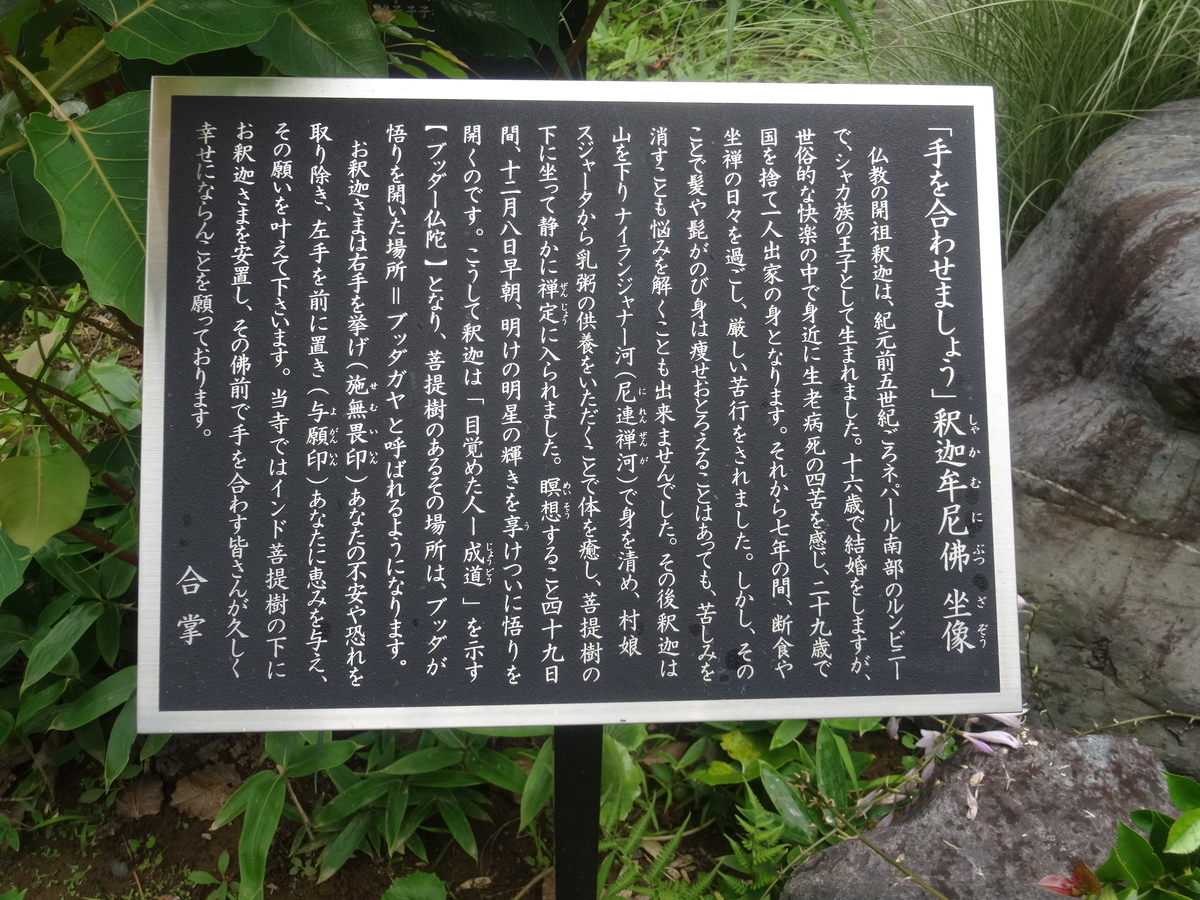 「手を合わせましょう」釈迦牟尼佛 坐像
しゃかむにぶつ ざぞう
仏教の開祖釈迦は、紀元前五世紀ごろネパール南部のルンビニー
で、シャカ族の王子として生まれました。十六歳で結婚をしますが、
世俗的な快楽の中で身近に生老病死の四苦を感じ、二十九歳で
国を捨て一人出家の身となります。それから七年の間、断食や
坐禅の日々を過ごし、厳しい苦行をされました。しかし、その
ことで髪や髭がのび身は痩せおとろえることはあっても、苦しみを
消すことも悩みを解くことも出来ませんでした。その後釈迦は
山を下りナイランジャナー河(尼連禅河)で身を清め、村娘
にれんぜんが
スジャータから乳粥の供養をいただくことで体を癒し、菩提樹の
下に坐って静かに禅定に入られました。瞑想すること四十九日
ぜんじょう めいそう
間、十二月八日早朝、明けの明星の輝きを享けついに悟りを
う
開くのです。こうして釈迦は「目覚めた人ー成道」を示す
じょうどう
【ブッダー仏陀】となり、菩提樹のあるその場所は、ブッダが
悟りを開いた場所＝ブッダガヤと呼ばれるようになります。
お釈迦さまは右手を挙げ(施無畏印)あなたの不安や恐れを
せむいいん
取り除き、左手を前に置き(与願印)あなたに恵みを与え、
よがんいん
その願いを叶えて下さいます。当寺ではインド菩提樹の下に
お釈迦さまを安置し、その佛前で手を合わす皆さんが久しく
幸せにならんことを願っております。
合掌